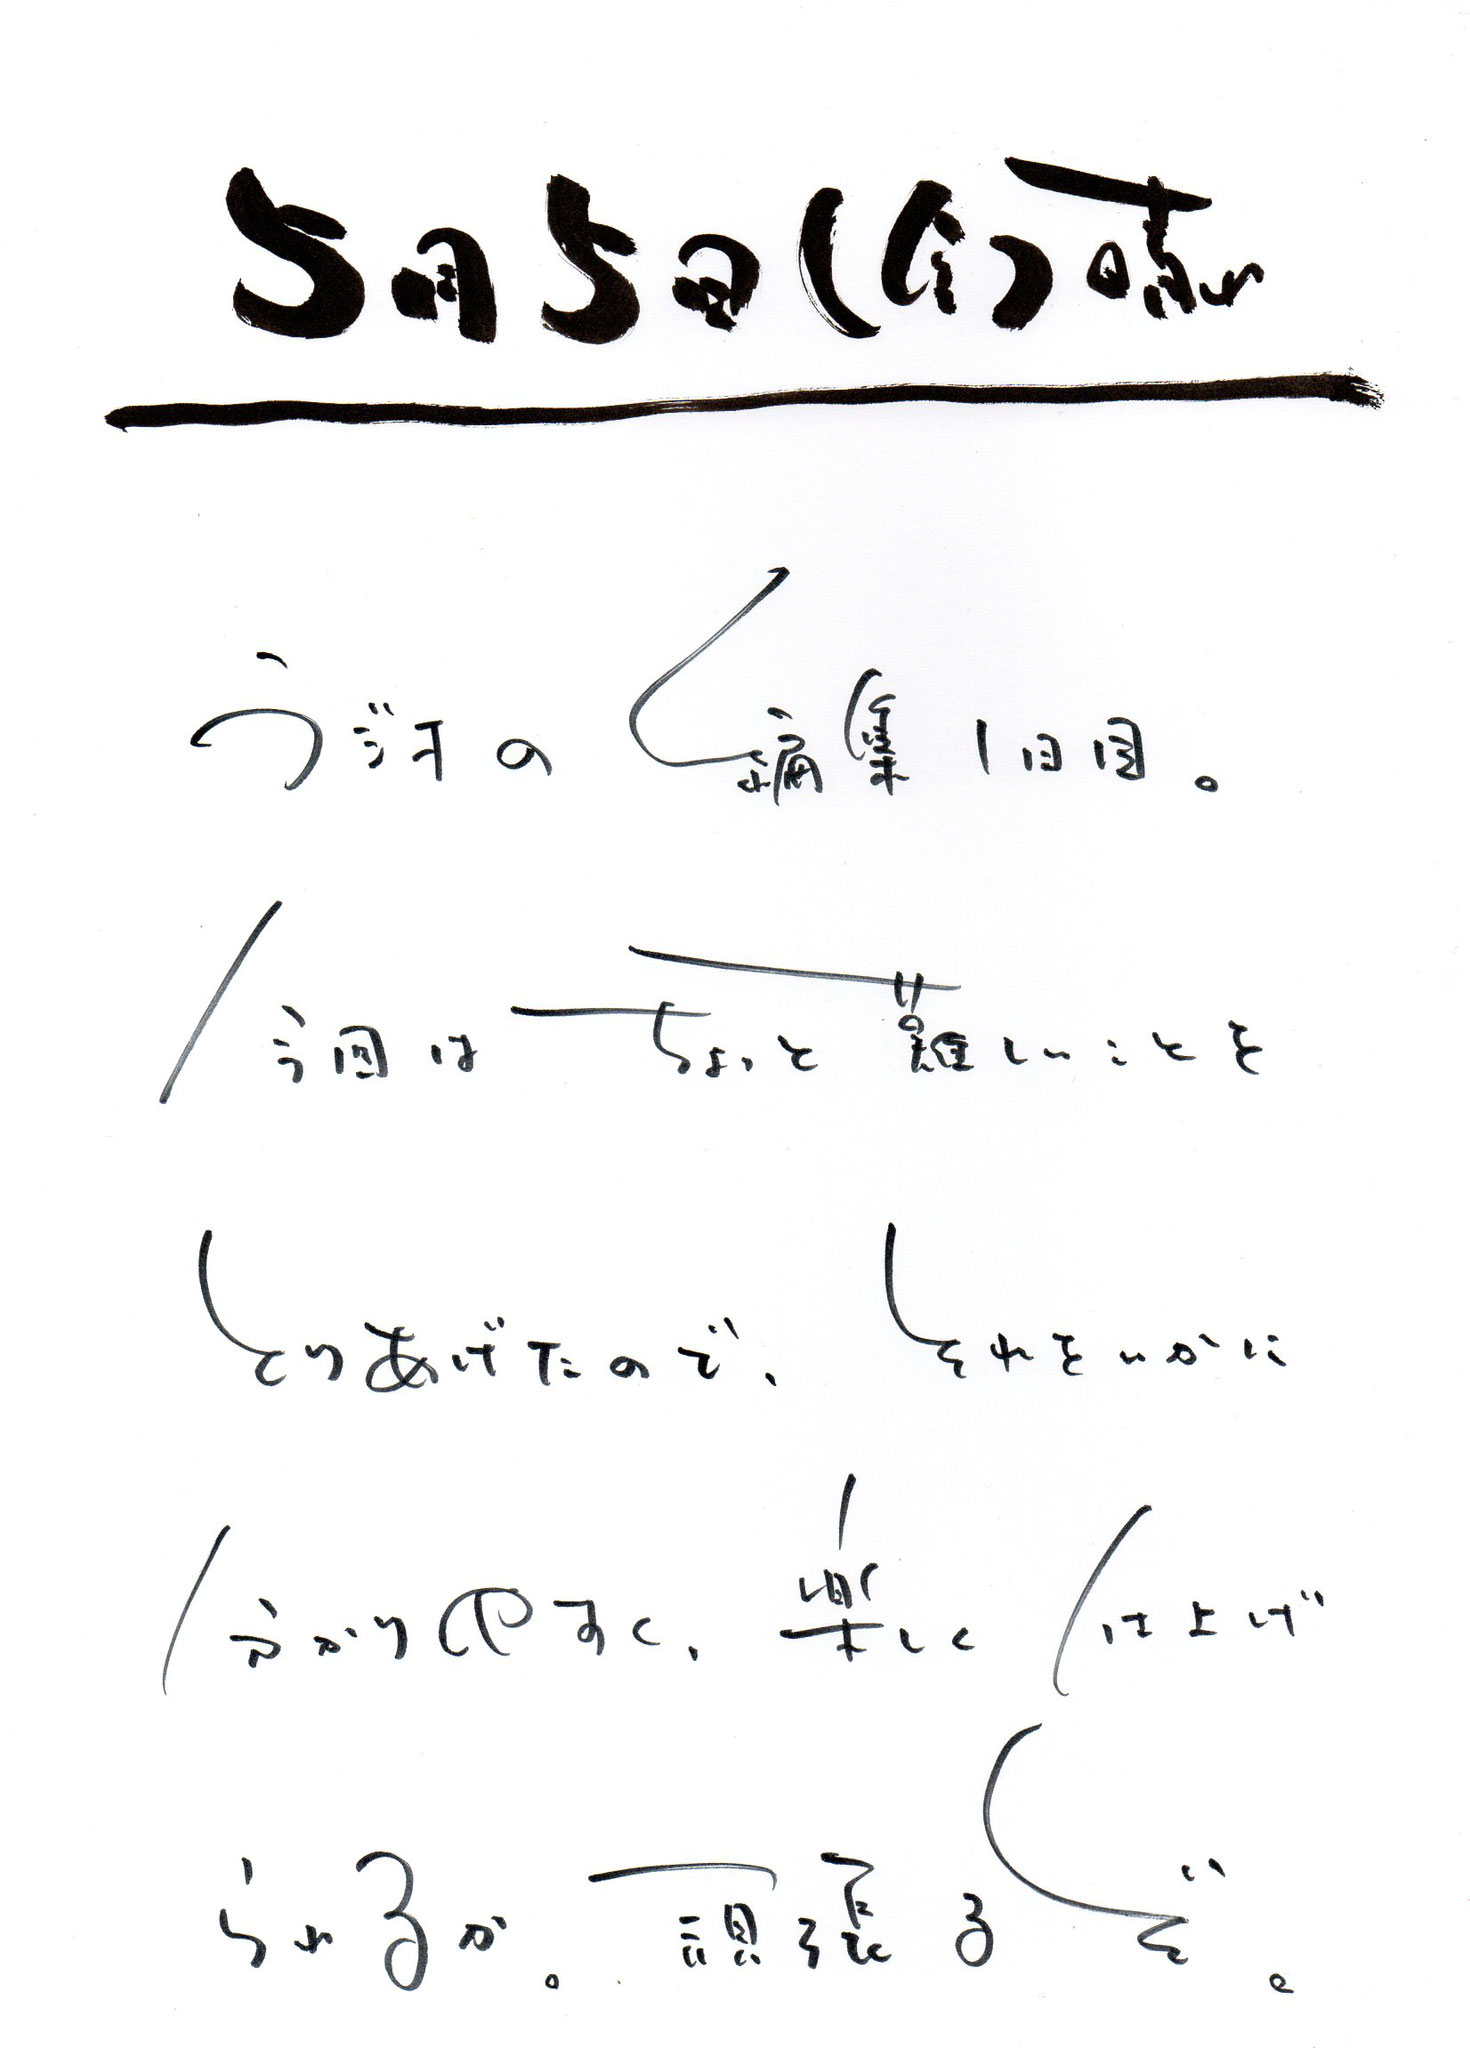 5月5日(金)晴れ
ラジオの編集1日目。
今回はちょっと難しいことを
とりあげたので、それをいかに
分かりやすく、楽しく仕上げ
られるか。頑張るぞ。